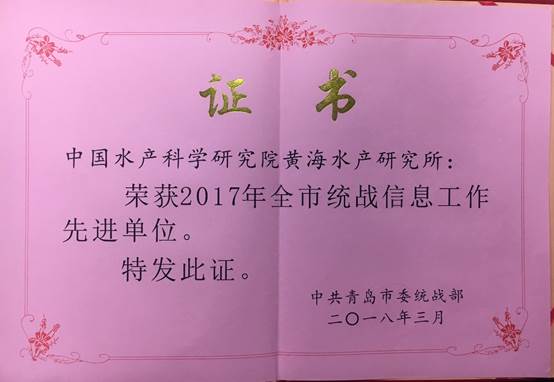 证书
中国水产科学研究院黄海水产研究所：
荣获2017年全市统战信息工作
先进单位。
特发此证。
中共青岛市委统战部
二〇一八年三月